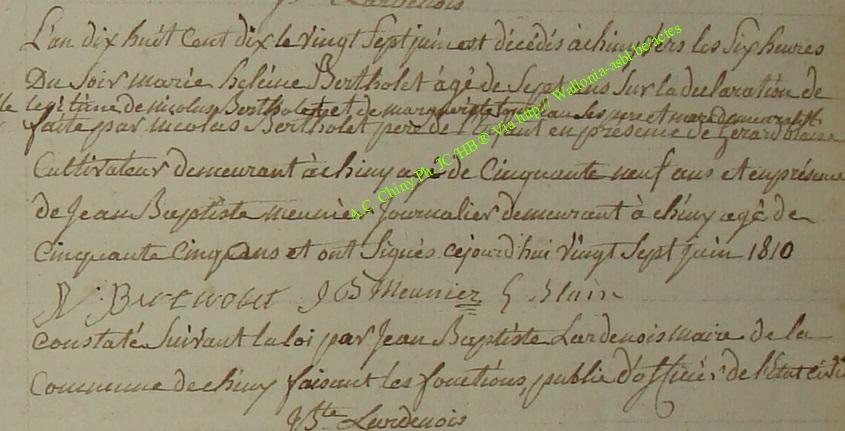 Lardenois
L'an dix huit cent dix le vingt Sept juin est décédés à chiny vers les Six heures
Du Soir marie heléine Bertholet âgé de Sept ans Sur la declaration de
lle legitime de nicolas Bertholet et de marguerite Ses pere et mere demeurant
faite par nicolas Bertholet pere de l'enfant en présence de Gerard blaise
Cultivateur demeurant à chiny agé de Cinquante neuf ans et en présence
de Jean Baptiste meunier Journalier demeurant à chiny agé de
Cinquante Cinq ans et ont Signés cejourd'hui vingt Sept juin 1810
N Bertholet J B Meunier G Blain
Constaté Suivant la loi par Jean Baptiste Lardenois maire de la
Commune de chiny faisant les fonctions, public d'officier de l'Etat civil
JBte Lardenois
A.C. Chiny Ph JC HB ® via http:// Wallonia-asbl.be/actes